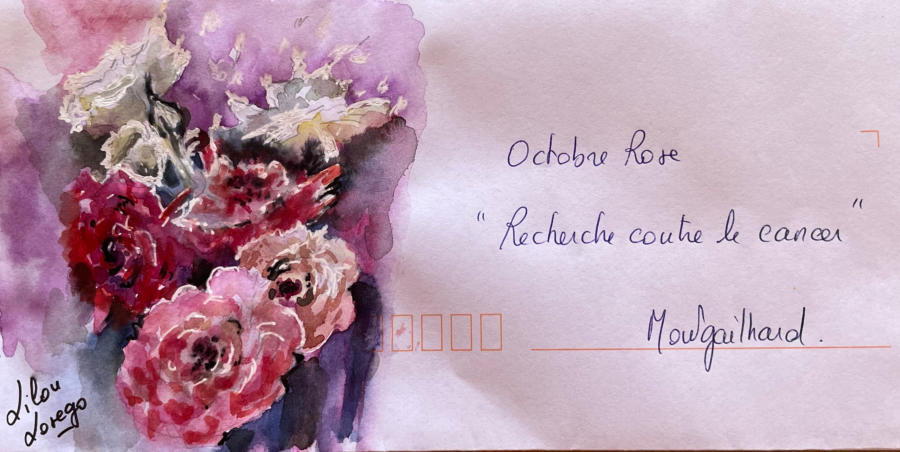 Octobre Rose
"Recherche contre le cancer"
Montgailhard.
Lilou
Lorego